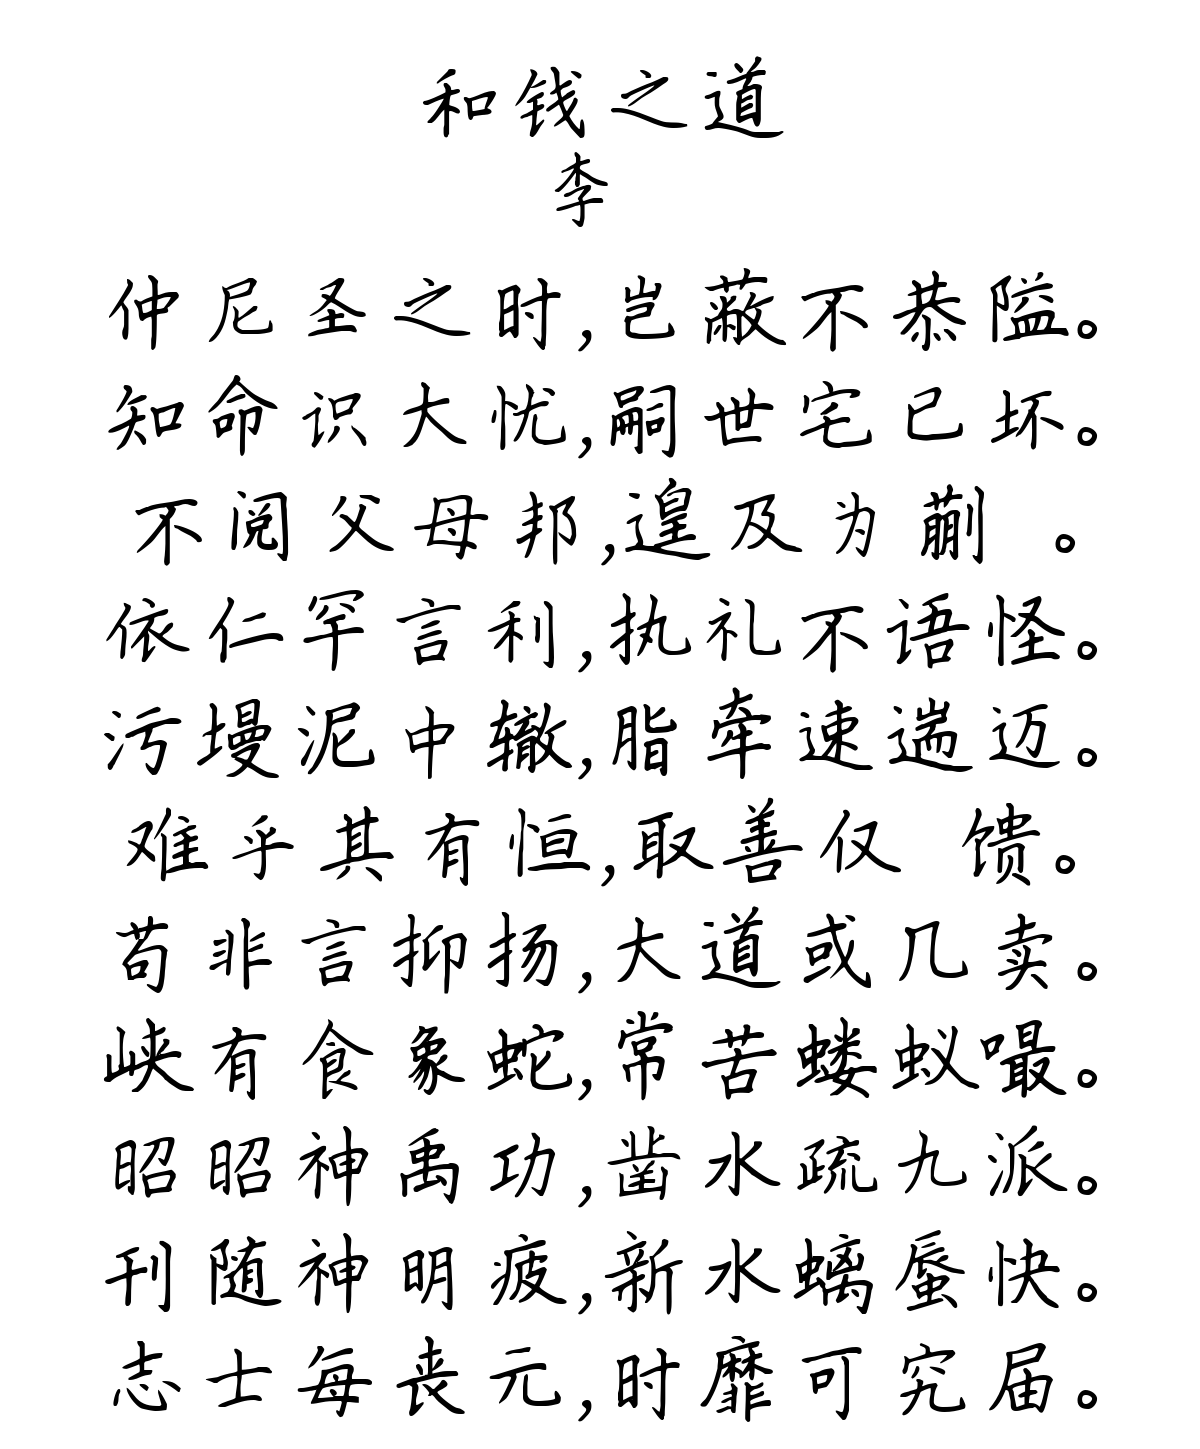 和钱之道
李
仲尼圣之时,岂蔽不恭隘。
知命识大忧,嗣世宅已坏。
不阅父母邦,遑及为蒯。
依仁罕言利,执礼不语怪。
污墁泥中辙,脂牵速遄迈。
难乎其有恒,取善仅 馈。
苟非言抑扬,大道或几卖。
峡有食象蛇,常苦蝼蚁嘬。
昭昭神禹功,凿水疏九派。
刊随神明疲,新水螭蜃快。
志士每丧元,时靡可究届。